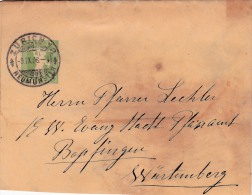 ZÜRICH
NEUMÜNSTER
Herrn Pfarrer Lechler
Evang. Stadt Pfarramt
Bopfingen
Würtemberg